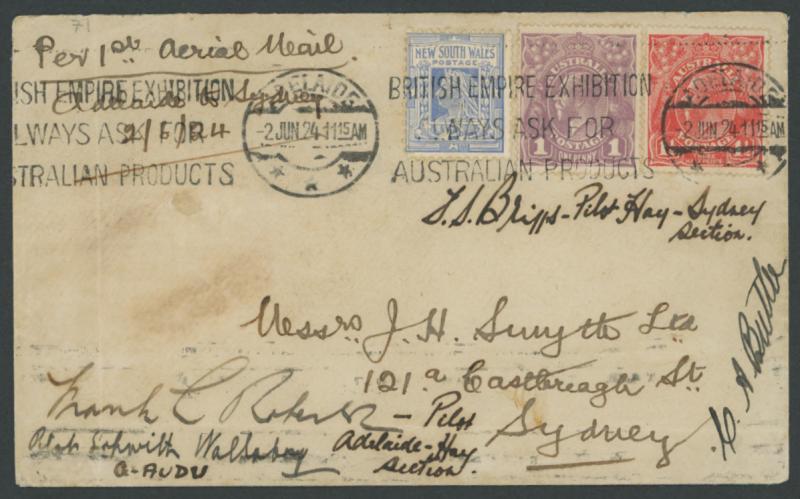 Per 1st Aerial Mail.
Adelaide to Sydney
2/6/24
ISH EMPIRE EXHIBITION
LWAYS ASK FOR
STRALIAN PRODUCTS
ADELAIDE
2 JUN 24·1115AM
NEW SOUTH WALES
POSTAGE
AUSTRALIA
1 1
POSTAGE
AUSTRALIA
BRITISH EMPIRE EXHIBITION
WAYS ASK FOR
AUSTRALIAN PRODUCTS
2 JUN 24·1115AM
F. S. Briggs - Pilot Hay - Sydney
Section.
Messrs J. H. Smyth Ltd
121a Castlereagh St.
Sydney
Frank L Roberts - Pilot
Adelaide-Hay
Section.
Pilot
G-AUDU
C A Butler